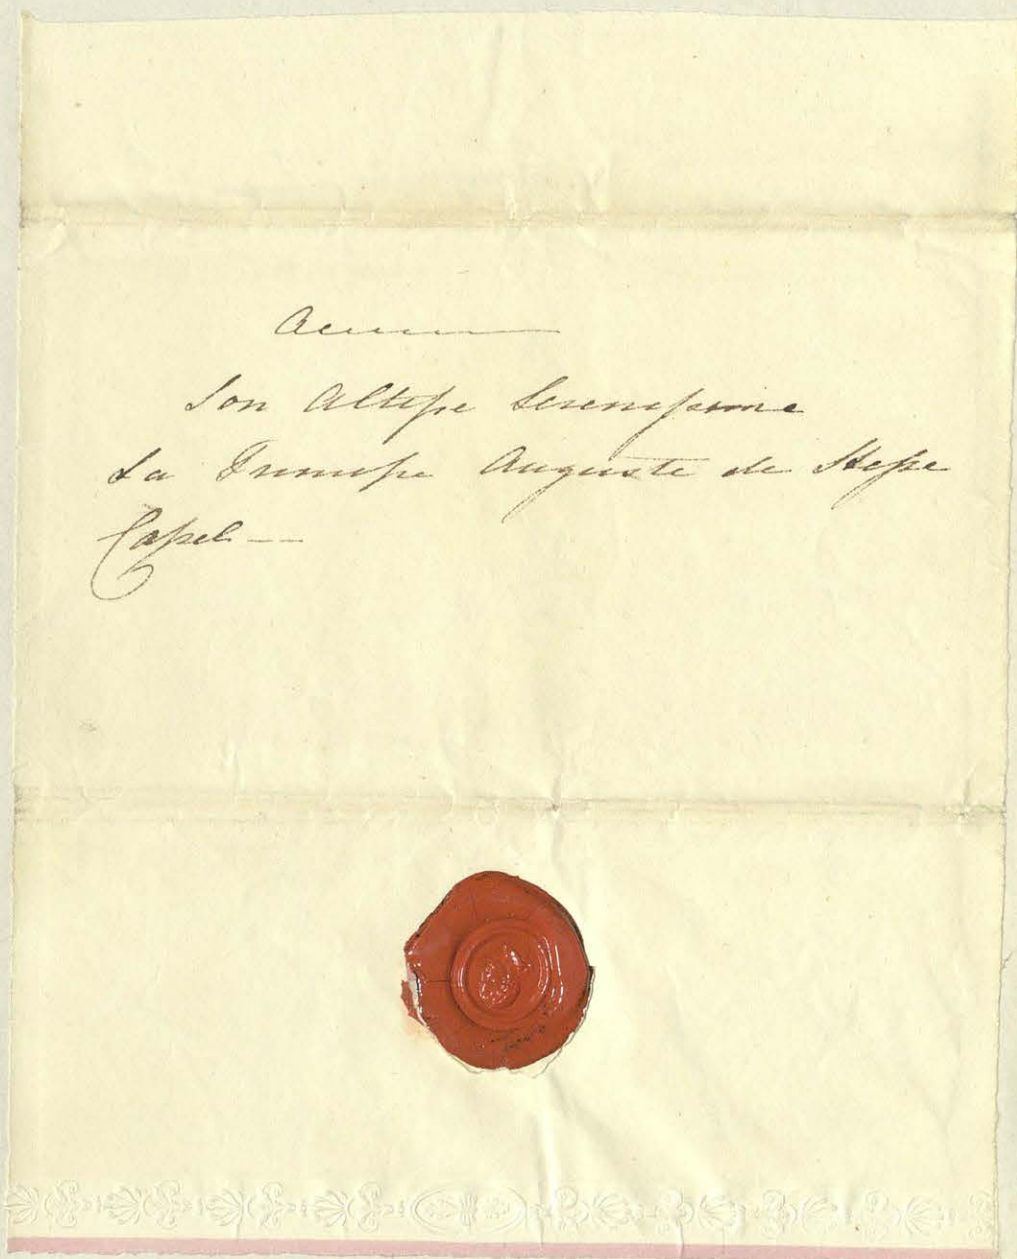 A
Son Altesse Serenessime
La Princesse Auguste de Hesse
Cassel —